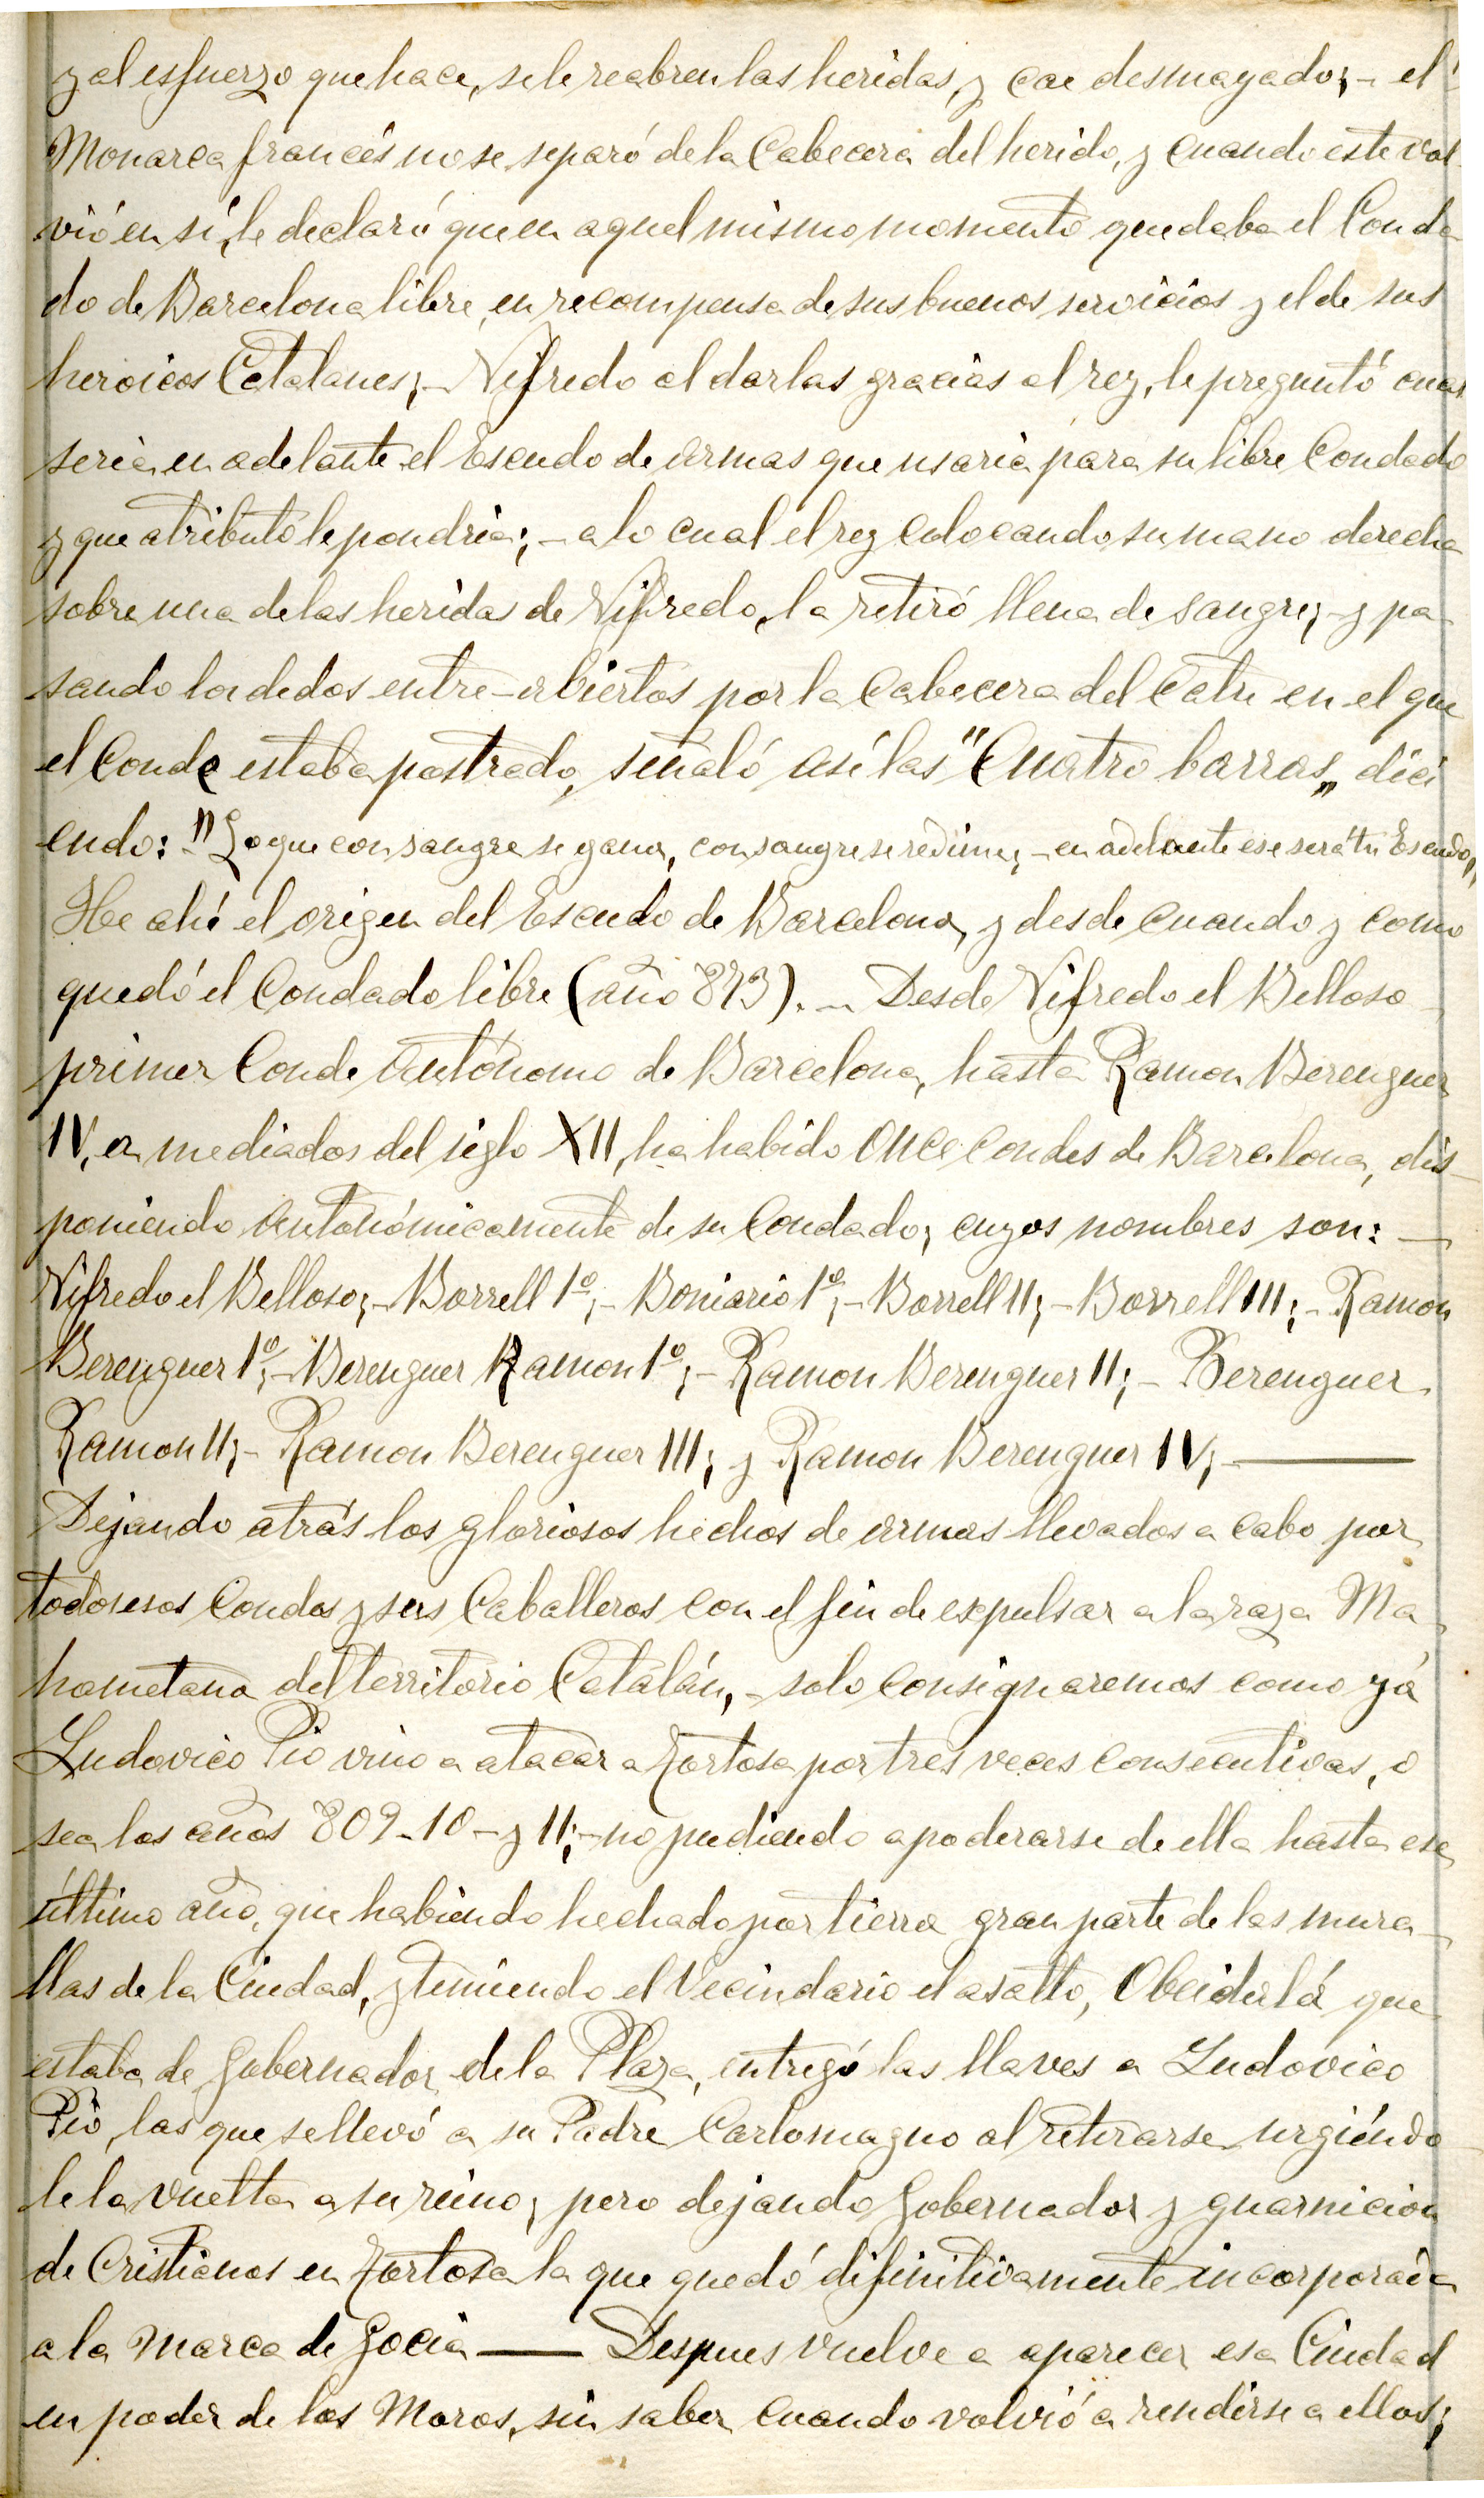 y al esfuerzo que hace, se le reabren las heridas, y cae desmayado; - el
Monarca francés no se separó de la Cabecera del herido, y cuando este vol-
vió en sí, le declaró que en aquel mismo momento quedaba el Conda
do de Barcelona libre, en recompensa de sus buenos servicios y el de sus
heroicos Catalanes; - Vifredo al dar las gracias al rey, le preguntó cual
seria en adelante el Escudo de armas que usaria para su libre Condado
y que atributo le pondria; - a lo cual el rey colocando su mano derecha
sobre una de las heridas de Vifredo, la retiró llena de sangre; - y pa
sando los dedos entre-abiertos por la Cabecera del Catre en el que
el Conde estaba postrado, señaló así las "Cuatro barras„ dici
endo: "Lo que con sangre se gana, con sangre se redime; - en adelante ese será tu Escudo„
He ahí el origen del Escudo de Barcelona, y desde cuando y como
quedó el Condado libre (año 873). - Desde Vifredo el Belloso
primer Conde Autónomo de Barcelona, hasta Ramon Berenguer
IV, a mediados del siglo XII, ha habido once Condes de Barcelona, dis-
poniendo Autonómicamente de su Condado; cuyos nombres son: -
Vifredo el Belloso; - Borrell 1º; - Boniario 1º; - Borrell II; - Borrell III; - Ramon
Berenguer 1º; - Berenguer Ramon 1º; - Ramon Berenguer II; - Berenguer
Ramon II; - Ramon Berenguer III; y Ramon Berenguer IV; -
Dejando atrás los gloriosos hechos de armas llevados a cabo por
todos esos Condes y sus Caballeros con el fin de expulsar a la raza Ma
hometana del territorio Catalán, - solo consignaremos como yá
Ludovico Pio vino a atacar a Tortosa por tres veces consecutivas, o
sea los años 809-10- y 11; - no pudiendo apoderarse de ella hasta ese
último año, que habiendo hechado por tierra gran parte de las mura-
llas de la Ciudad, y temiendo el Vecindario el asalto, Obeidulá que
estaba de Gobernador de la Plaza, entregó las llaves a Ludovico
Pio, las que se llevó a su Padre Carlomagno al retirarse, urgiéndo
le la vuelta a su reino; pero dejando Gobernador y guarnicion
de Cristianos en Tortosa la que quedó difinitivamente incorporada
a la Marca de Gocia - Despues vuelve a aparecer esa Ciudad
en poder de los Moros, sin saber cuando volvió a rendirse a ellos;